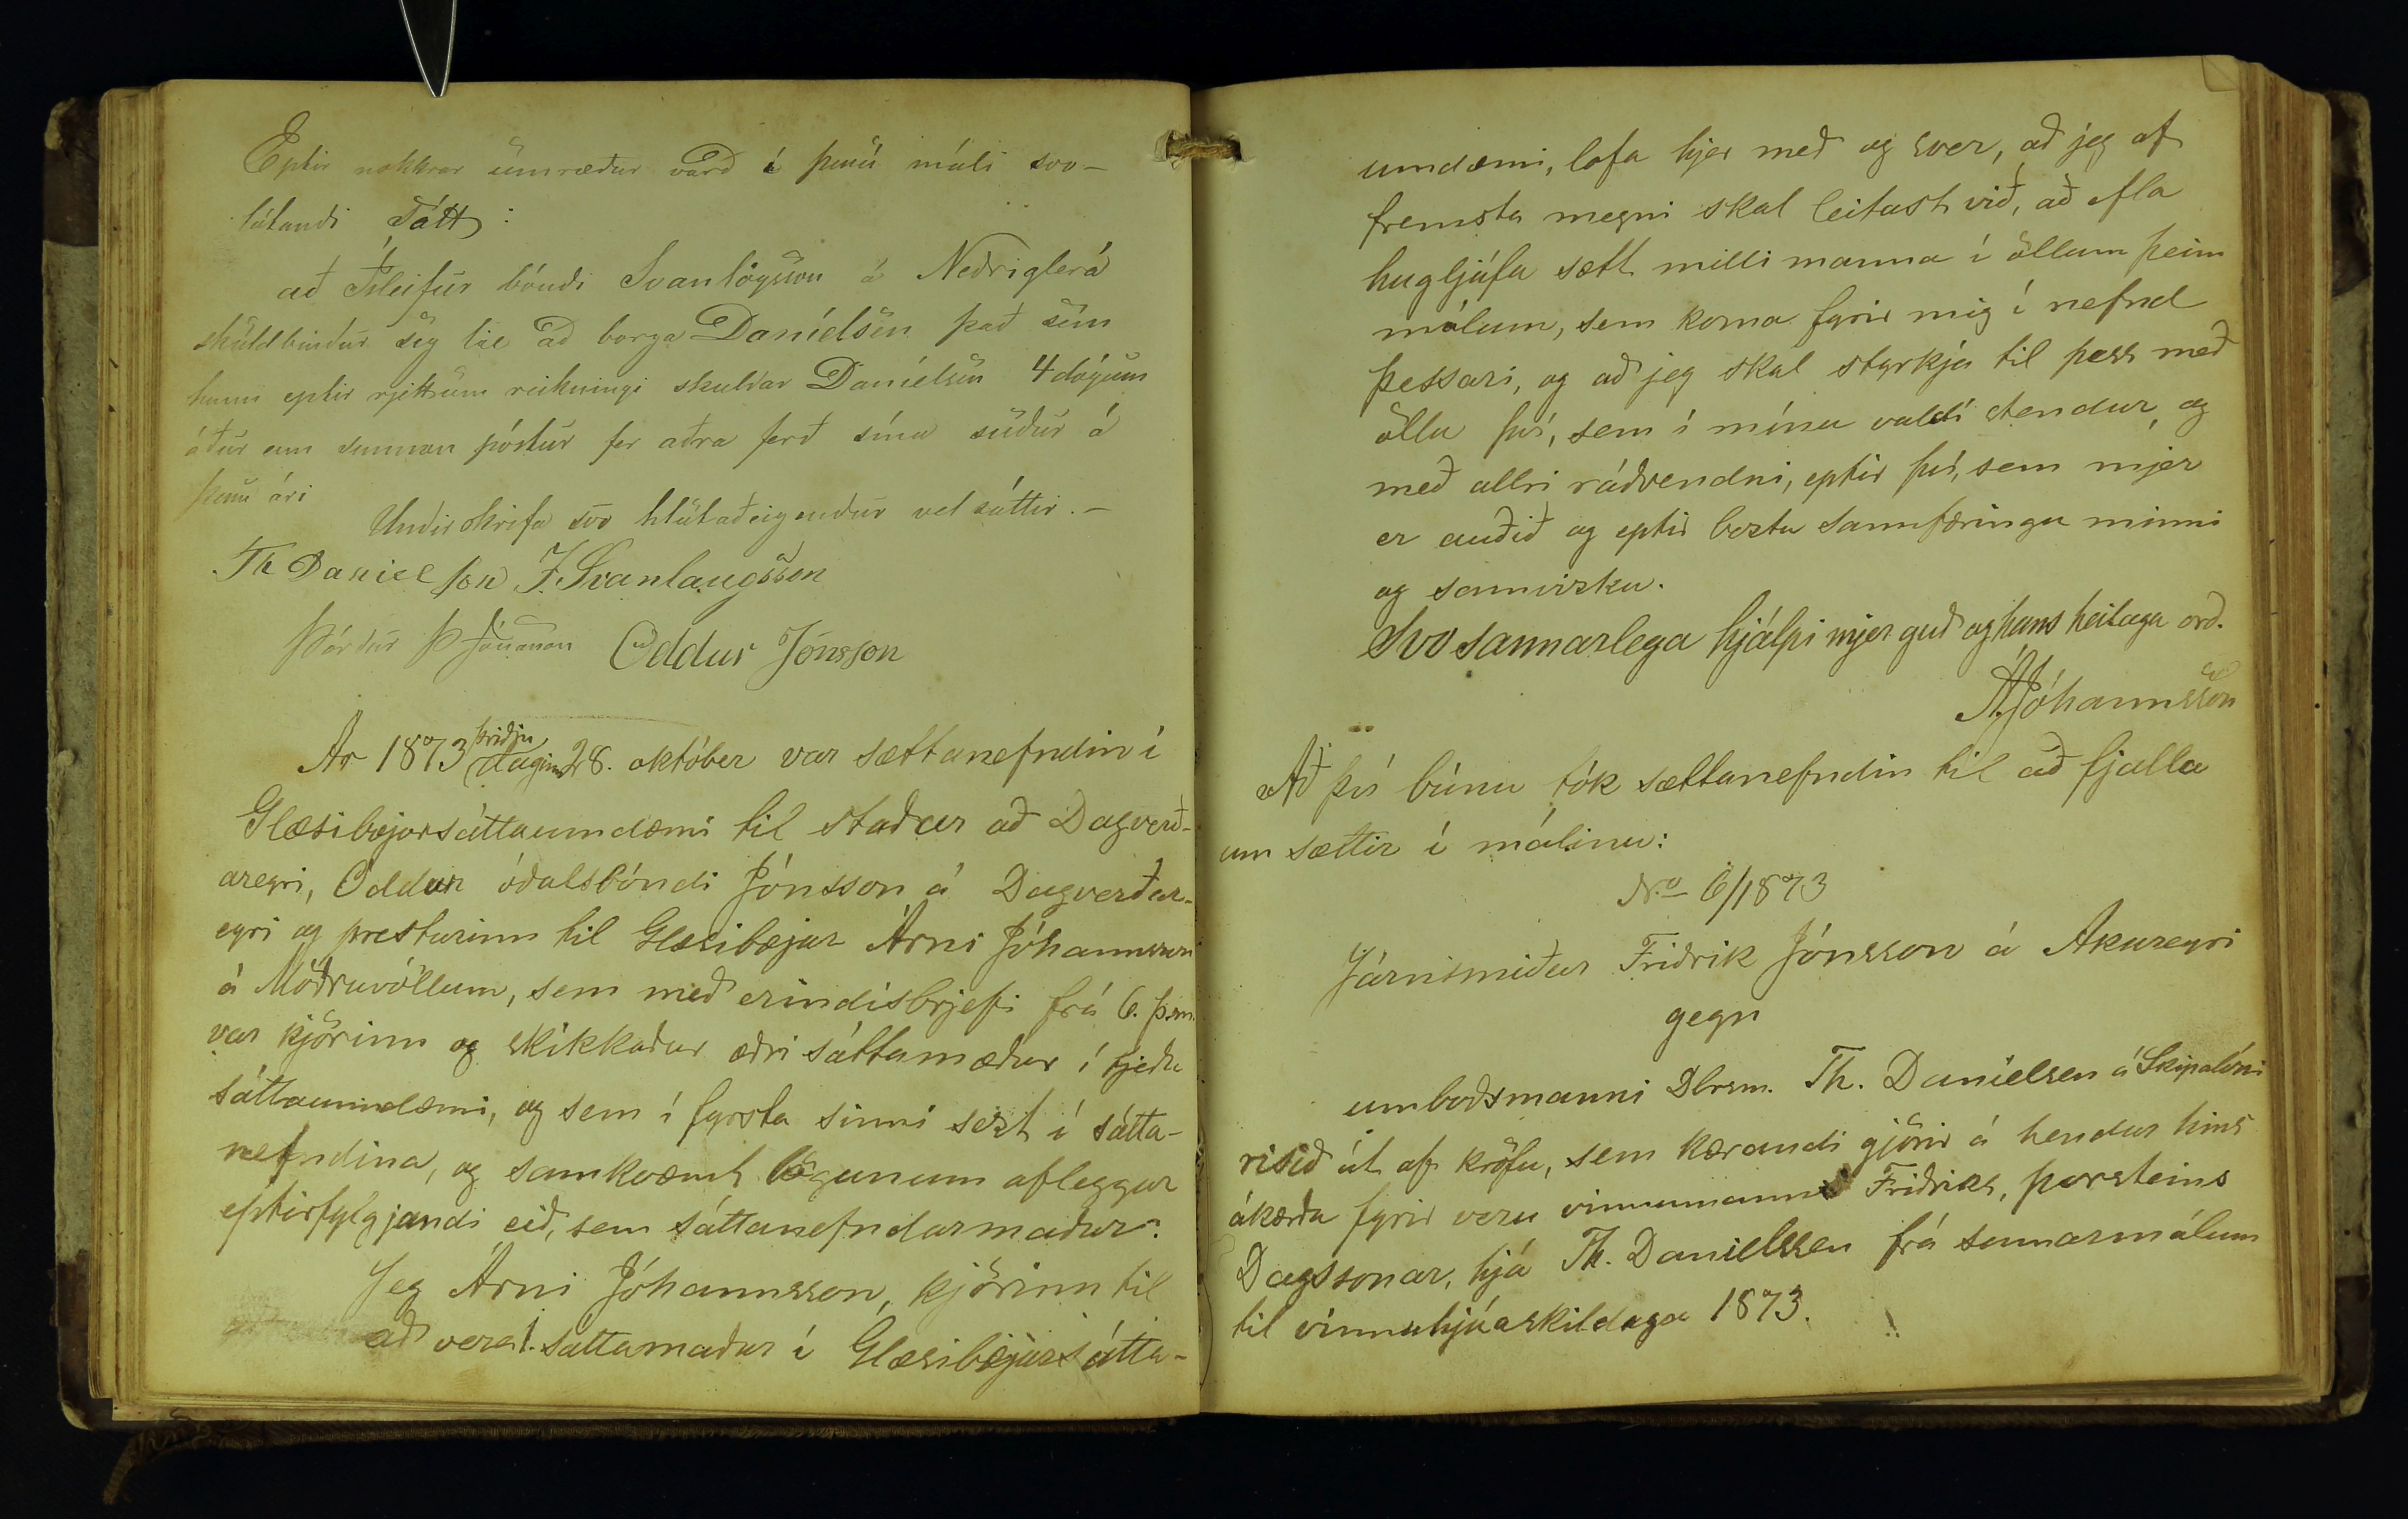 Eptir nokkrar umræður varð í þessu máli svo-
látandi Sátt:
að Ísleifur bóndi Svanlögsson á Neðriglerá
skuldbindur sig til að borga Daníelsen það sem
hann eptir rjettum reikningi skuldar Daníelsen 4 dögum
áður enn sunnan póstur fer aðra ferð sína suður á
þessu ári
Undirskrifa svo hlutaðeigendur vel sáttir. -
Th Danielsen J. Svanlaugsson
Þórður Þ Jónasson Oddur Jónsson
Ár 1873 þriðju
daginn 28. október var sættanefndin í
Glæsibæjarsáttaumdæmi til staðar að Dagverð-
areyri, Oddur óðalsbóndi Jónsson á Dagverðar-
eyri og presturinn til Glæsibæjar Árni Jóhannsson
á Möðruvöllum, sem með erindisbrjefi frá 6. þ.m.
var kjörinn og skikkaður æðri sáttamaður í tjeðu
sáttaumdæmi, og sem í fyrsta sinni sezt í sátta-
nefndina, og samkvæmt lögunum afleggur
eptirfylgjandi eið, sem sáttanefndarmaður:
Jeg Árni Jóhannsson, kjörinn til
að vera 1. sáttamaður í Glæsibæjarsátta-
umdæmi, lofa hjer með og sver, að jeg af
fremsta megni skal leitast við, að efla
hugljúfa sætt milli manna í öllum þeim
málum, sem koma fyrir mig í nefnd
þessari, og að jeg skal styrkja til þess með
öllu því, sem í mínu valdi stendur, og
með allri ráðvendni, eptir því, sem mjer
er auðið og eptir beztu sannfæringu minni
og samvizku.
Svo sannarlega hjálpi mjer guð og hans heilaga orð.
ÁJóhannsson
Að því búnu tók sættanefndin til að fjalla
um sættir í málinu:
No 6/1873
Járnsmiður Friðrik Jónsson á Akureyri
gegn
umboðsmanni Dbrm. Th. Daníelsen á Skipalóni
risið út af kröfu, sem kærandi gjörir á hendur hins
ákærða fyrir veru vinnumanns Friðriks, Þorsteins
Dagssonar, hjá Th. Danielssen frá sumarmálum
til vinnuhjúaskildaga 1873.